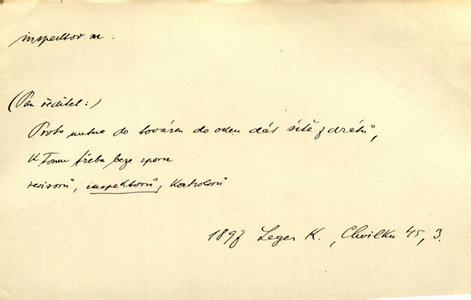 inspektor m.
(Pan ředitel:)
Proto nutno do továren do oken dát sítě z drátů,
K tomu třeba beze sporu
revisorů, inspektorů, kontrolorů
1897 Leger K., Chvilku 45, 3.